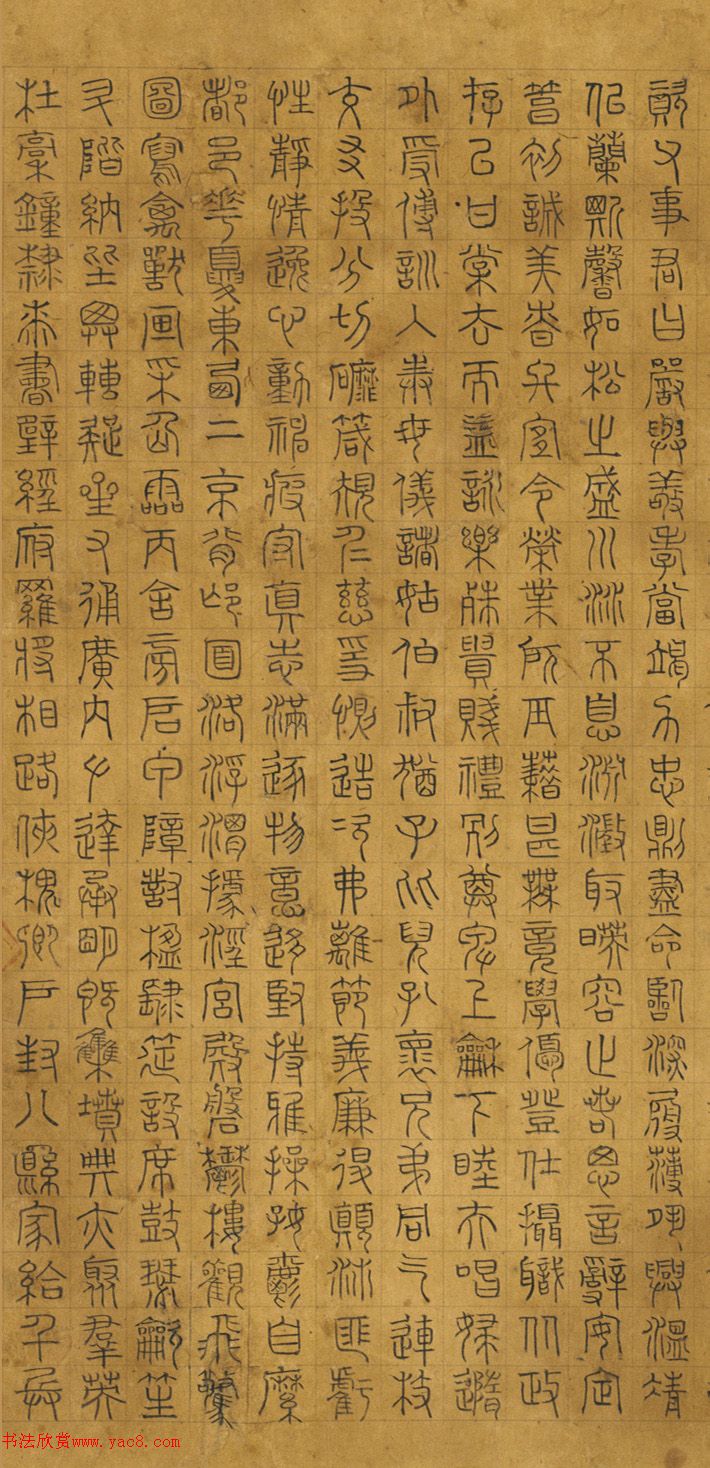 資父事君曰嚴與敬孝當竭力忠則盡命臨深履薄夙興溫凊
似蘭斯馨如松之盛川流不息淵澄取映容止若思言辭安定
篤初誠美慎終宜令榮業所基籍甚無竟學優登仕攝職從政
存以甘棠去而益詠樂殊貴賤禮別尊卑上和下睦夫唱婦隨
外受傅訓入奉母儀諸姑伯叔猶子比兒孔懷兄弟同氣連枝
交友投分切磨箴規仁慈隱惻造次弗離節義廉退顛沛匪虧
性靜情逸心動神疲守真志滿逐物意移堅持雅操好爵自縻
都邑華夏東西二京背邙面洛浮渭據涇宮殿盤鬱樓觀飛驚
圖寫禽獸畫彩仙靈丙舍傍啟甲帳對楹肆筵設席鼓瑟吹笙
升階納陛弁轉疑星右通廣內左達承明既集墳典亦聚群英
杜稿鐘隸漆書壁經府羅將相路俠槐卿戶封八縣家給千兵
书法欣赏www.yac8.com